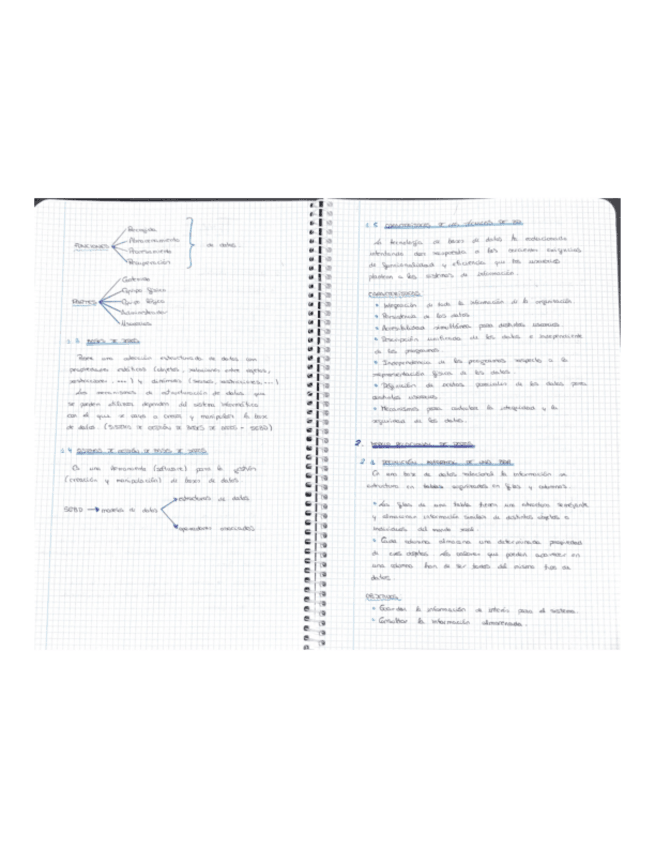 FUNCIONES
Recogida
Almacenamiento
Procesamiento
Recuperación
de datos
PARTES
Contenido
Equipo físico
Equipo lógico
Administrador
Usuarios
1.3 BASES DE DATOS
Tiene una colección estructurada de datos con
propiedades estáticas (objetos, relaciones entre objetos,
restricciones, ...) y dinámicas (
Los mecanismos de estructuración de datos que
se pueden utilizar dependen del sistema informático
con el que se vaya a crear y manipular la base
de datos. (SISTEMA DE GESTIÓN DE BASES DE DATOS - SGBD)
1.4 SISTEMAS DE GESTIÓN DE BASES DE DATOS
Es una herramienta (software) para la gestión
(creación y manipulación) de bases de datos
SGBD → modelo de datos
estructuras de datos
operadores asociados
1.5 CARACTERÍSTICAS DE LAS TÉCNICAS DE BD
La tecnología de bases de datos ha evolucionado
intentando dar respuesta a las crecientes exigencias
de funcionalidad y eficiencia que los usuarios
plantean a los sistemas de información.
CARACTERÍSTICAS
• Integración de toda la información de la organización
• Persistencia de los datos
• Accesibilidad simultánea para distintos usuarios
• Descripción unificada de los datos e independiente
de los programas.
• Independencia de los programas respecto a la
representación física de los datos.
• Definición de vistas parciales de los datos para
distintos usuarios.
• Mecanismos para controlar la integridad y la
seguridad de los datos.
2. MODELO RELACIONAL DE DATOS
2.1 DEFINICIÓN INFORMAL DE UNA BDR
Es una base de datos relacional la información se
estructura en tablas organizadas en filas y columnas.
• Las filas de una tabla tienen una estructura semejante
y almacenan información similar de distintos objetos o
individuos del mundo real.
• Cada columna almacena una determinada propiedad
de esos objetos. Los valores que pueden aparecer en
una columna han de ser todos del mismo tipo de
datos.
OBJETIVOS
• Guardar la información de interés para el sistema.
• Consultar la información almacenada.